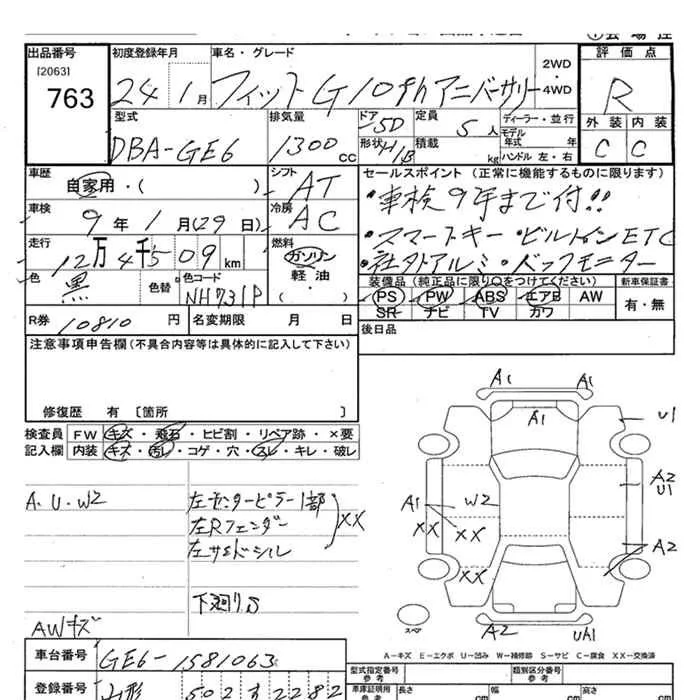 出品番号
[2063]
763
初度登録年月
24 1月
車名・グレード
フィットG10thアニバーサリー
2WD
・
4WD
評価点
R
外装 内装
C C
型式
DBA-GE6
排気量
1300cc
ドア
5D
形状
H/B
定員
5人
積載
kg
ディーラー・並行
モデル
年式 年
ハンドル 左・右
車歴
自家用・( )
シフト
AT
車検
9年1月(29日)
冷房
AC
走行
12万4千509km
燃料
ガソリン
軽油
・
( )
色
黒
色替
色コード
NH731P
セールスポイント (正常に機能するものに限ります)
・車検9年まで付!!
・スマートキー・ビルトインETC
・社外アルミ・バックモニター
装備品(純正品に限り○をつけてください)
PS PW ABS エアB AW
SR ナビ TV カワ
新車保証書
有・無
R券 10810円
名変期限 月 日
後日品
注意事項申告欄(不具合内容等は具体的に記入して下さい)
修復歴 有 [箇所 ]
検査員 FW キズ・飛石・ヒビ割・リペア跡・×要
記入欄 内装 キズ・汚レ・コゲ・穴・スレ・キレ・破レ
A.U.W2
左センターピラー1部
左Rフェンダー
左サイドシル
XX
下廻りS
AWキズ
A1 A1
A1
U1
A2
U1
A1
XX
W2
XX
XX
A2
スペア
A2
UH1
A-キズ E-エクボ U-凹み W-補修跡 S-サビ C-腐食 XX-交換済
車台番号 GE6-1581063
登録番号 山形 502 す 2282
型式指定番号
参考
類別区分番号
参考
車庫証明用
参考
長さ cm
幅 cm
高さ cm